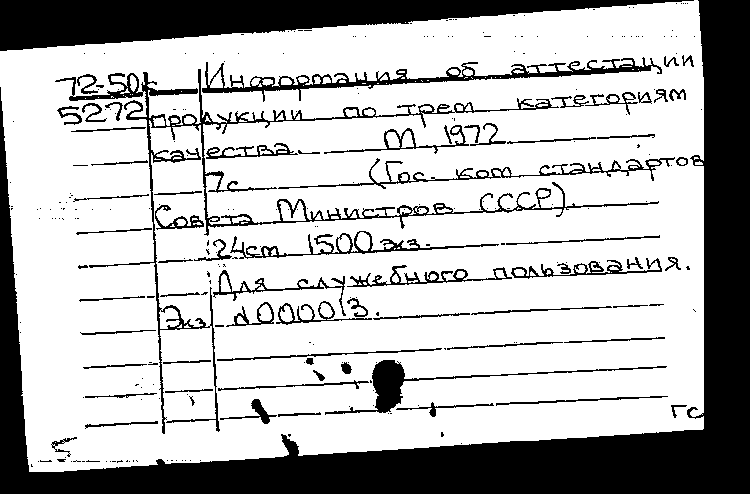 72-50к Информация об аттестации
5272 продукции по трем категориям
качества. М, 1972
7с. (Гос. ком стандартов
Совета Министров СССР).
24ст. 1500 экз.
Для служебного пользования.
Экз N 000013.
гс
5